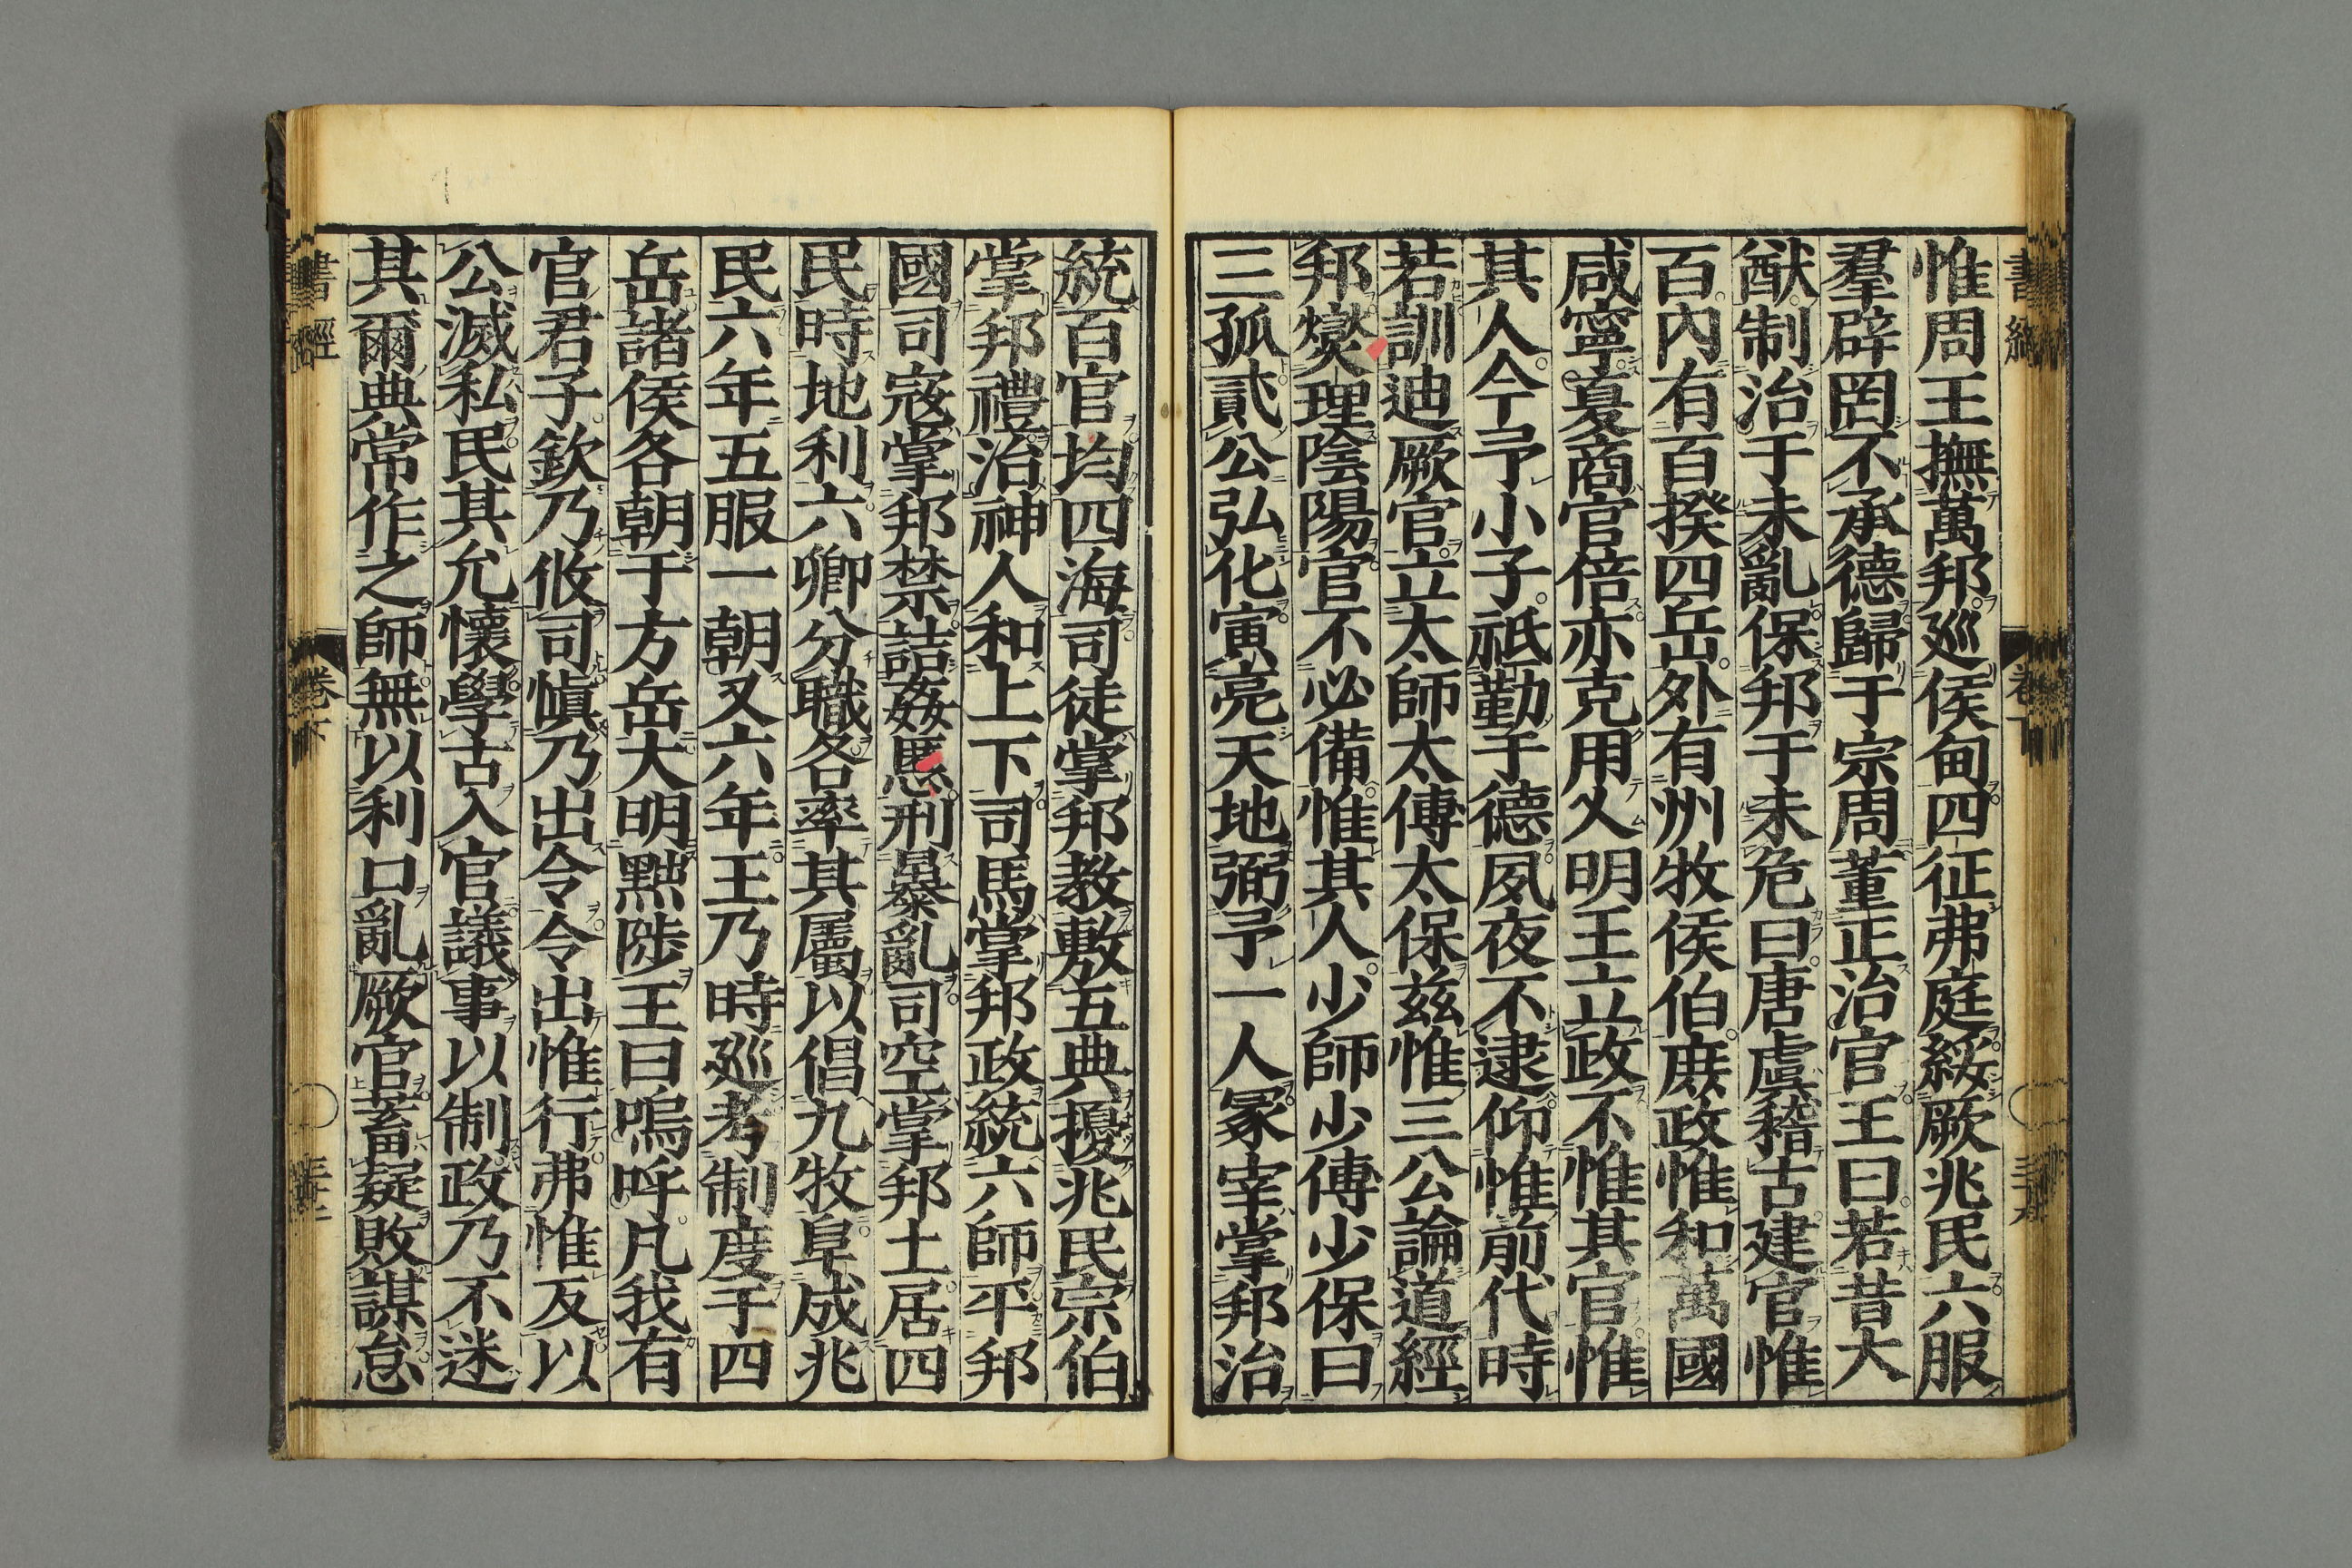 惟周王撫萬邦巡侯甸四征弗庭綏厥兆民六服
羣辟罔不承德歸于宗周董正治官王曰若昔大
猷制治于未亂保邦于未危曰唐虞稽古建官惟
百內有百揆四岳外有州牧侯伯庶政惟和萬國
咸寧夏商官倍亦克用乂明王立政不惟其官惟
其人今予小子祗勤于德夙夜不逮仰惟前代時
若訓迪厥官立太師太傅太保茲惟三公論道經
邦燮理陰陽官不必備惟其人少師少傅少保曰
三孤貳公弘化寅亮天地弼予一人冢宰掌邦治
統百官均四海司徒掌邦教敷五典擾兆民宗伯
掌邦禮治神人和上下司馬掌邦政統六師平邦
國司寇掌邦禁詰姦慝刑暴亂司空掌邦土居四
民時地利六卿分職各率其屬以倡九牧阜成兆
民六年五服一朝又六年王乃時巡考制度于四
岳諸侯各朝于方岳大明黜陟王曰嗚呼凡我有
官君子欽乃攸司愼乃出令令出惟行弗惟反以
公滅私民其允懷學古入官議事以制政乃不迷
其爾典常作之師無以利口亂厥官蓄疑敗謀怠
書經
卷下